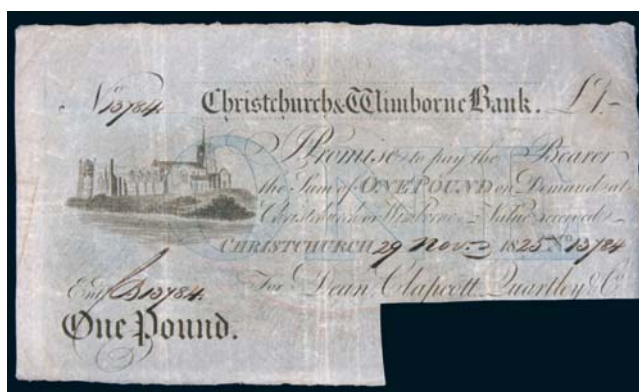 No 13784. Christchurch & Wimborne Bank. £1.-
I Promise to pay the Bearer
the Sum of ONE POUND on Demand at
Christchurch or Wimborne Value received
CHRISTCHURCH 29 Nov. 1825 No 13784
For Dean, Clapcott, Quartley & Co
Entd 13784.
One Pound.
ONE